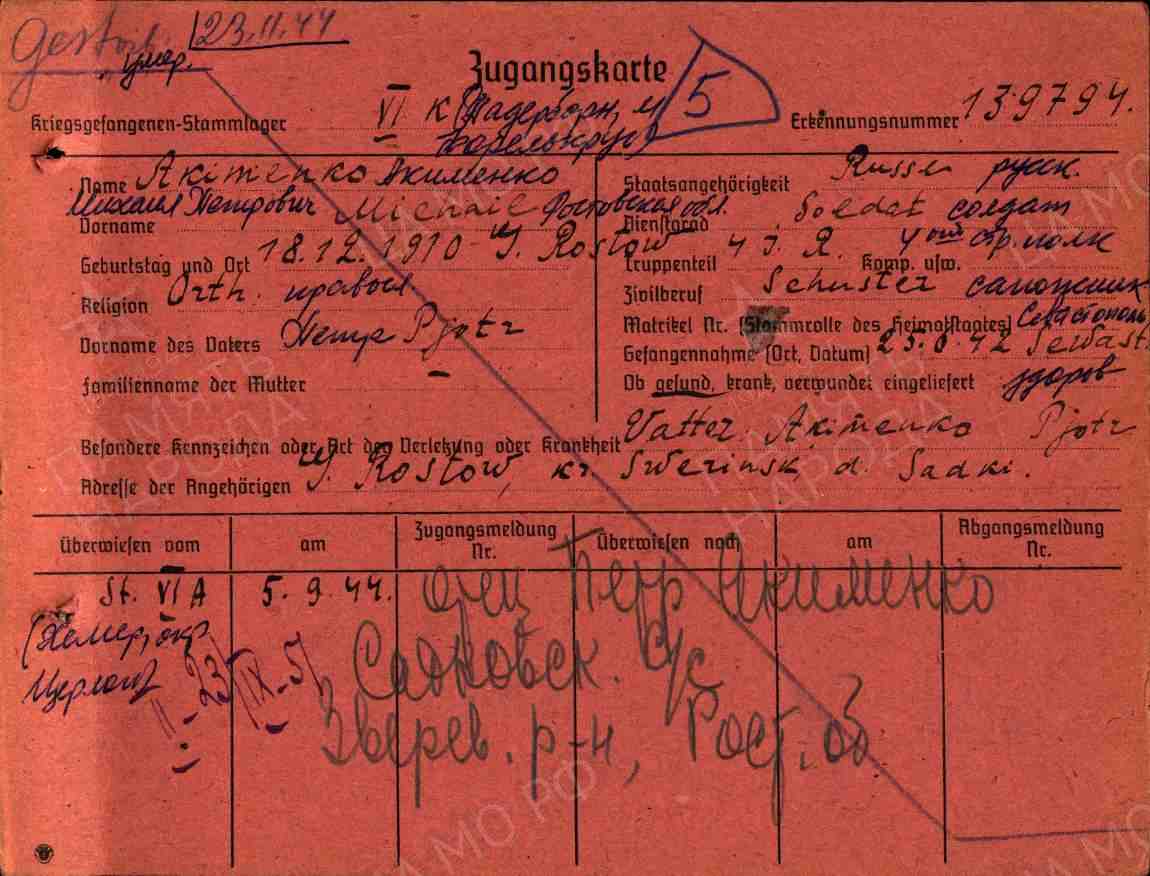 Gestorb. 23.11.44
умер.
Zugangskarte
5
Kriegsgefangenen-Stammlager VI K (Падерборн, м
Erkennungsnummer 139794.
Name Akimenko Якименко
Михаил Петрович
Vorname Michail Ростовская обл.
Geburtstag und Ort 18.12.1910 Rostow
Religion Orth. правосл
Vorname des Vaters Pjotr
Familienname der Mutter
Staatsangehörigkeit Russe русск.
Dienstgrad Soldat солдат
Truppenteil 4 J. R. Komp. usw. 4 ый стр. полк
Zivilberuf Schuster сапожник
Matrikel Nr. (Stammrolle des Heimatstaates) Севастополь
Gefangennahme (Ort, Datum) 25.6.42 Sewast.
Ob gesund, krank, verwundet eingeliefert здоров
Besondere Kennzeichen oder Art der Verletzung oder Krankheit Vatter Akimenko Pjotr
Adresse der Angehörigen Rostow, kr. Swerinsk d. Sadki.
Überwiesen vom am Zugangsmeldung Nr. Überwiesen nach am Abgangsmeldung Nr.
St. VI A 5.9.44.
(Хемер, окр
Отец Петр Якименко
Садковск. с/с
Зверев. р-н, Рост. об
II-23/IX-5/
ПАМЯТЬ НАРОДА
ЦАМО РФ